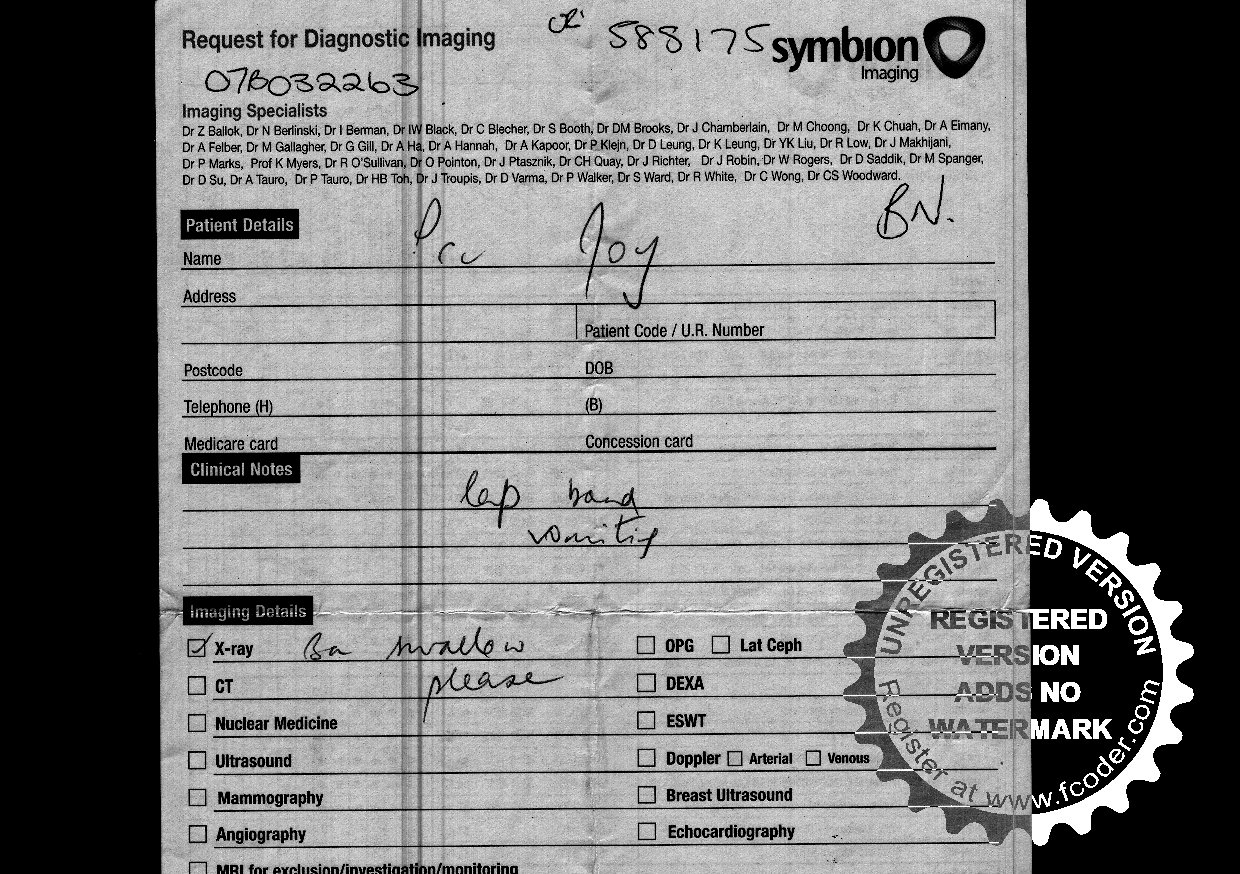 Request for Diagnostic Imaging
588175
symbion
Imaging
07B032263
Imaging Specialists
Dr Z Ballok, Dr N Berlinski, Dr I Berman, Dr IW Black, Dr C Blecher, Dr S Booth, Dr DM Brooks, Dr J Chamberlain, Dr M Choong, Dr K Chuah, Dr A Eimany,
Dr A Felber, Dr M Gallagher, Dr G Gill, Dr A Ha, Dr A Hannah, Dr A Kapoor, Dr P Klejn, Dr D Leung, Dr K Leung, Dr YK Liu, Dr R Low, Dr J Makhijani,
Dr P Marks, Prof K Myers, Dr R O'Sullivan, Dr O Pointon, Dr J Ptasznik, Dr CH Quay, Dr J Richter, Dr J Robin, Dr W Rogers, Dr D Saddik, Dr M Spanger,
Dr D Su, Dr A Tauro, Dr P Tauro, Dr HB Toh, Dr J Troupis, Dr D Varma, Dr P Walker, Dr S Ward, Dr R White, Dr C Wong, Dr CS Woodward.
BN.
Patient Details
Name Joy
Address
Patient Code / U.R. Number
Postcode DOB
Telephone (H) (B)
Medicare card Concession card
Clinical Notes
lap band
vomiting
Imaging Details
X-ray Ba swallow OPG Lat Ceph
please
CT DEXA
Nuclear Medicine ESWT
Ultrasound Doppler Arterial Venous
Mammography Breast Ultrasound
Angiography Echocardiography
MRI for exclusion/investigation/monitoring
UNREGISTERED VERSION
REGISTERED
VERSION
ADDS NO
WATERMARK
Register at www.fcoder.com